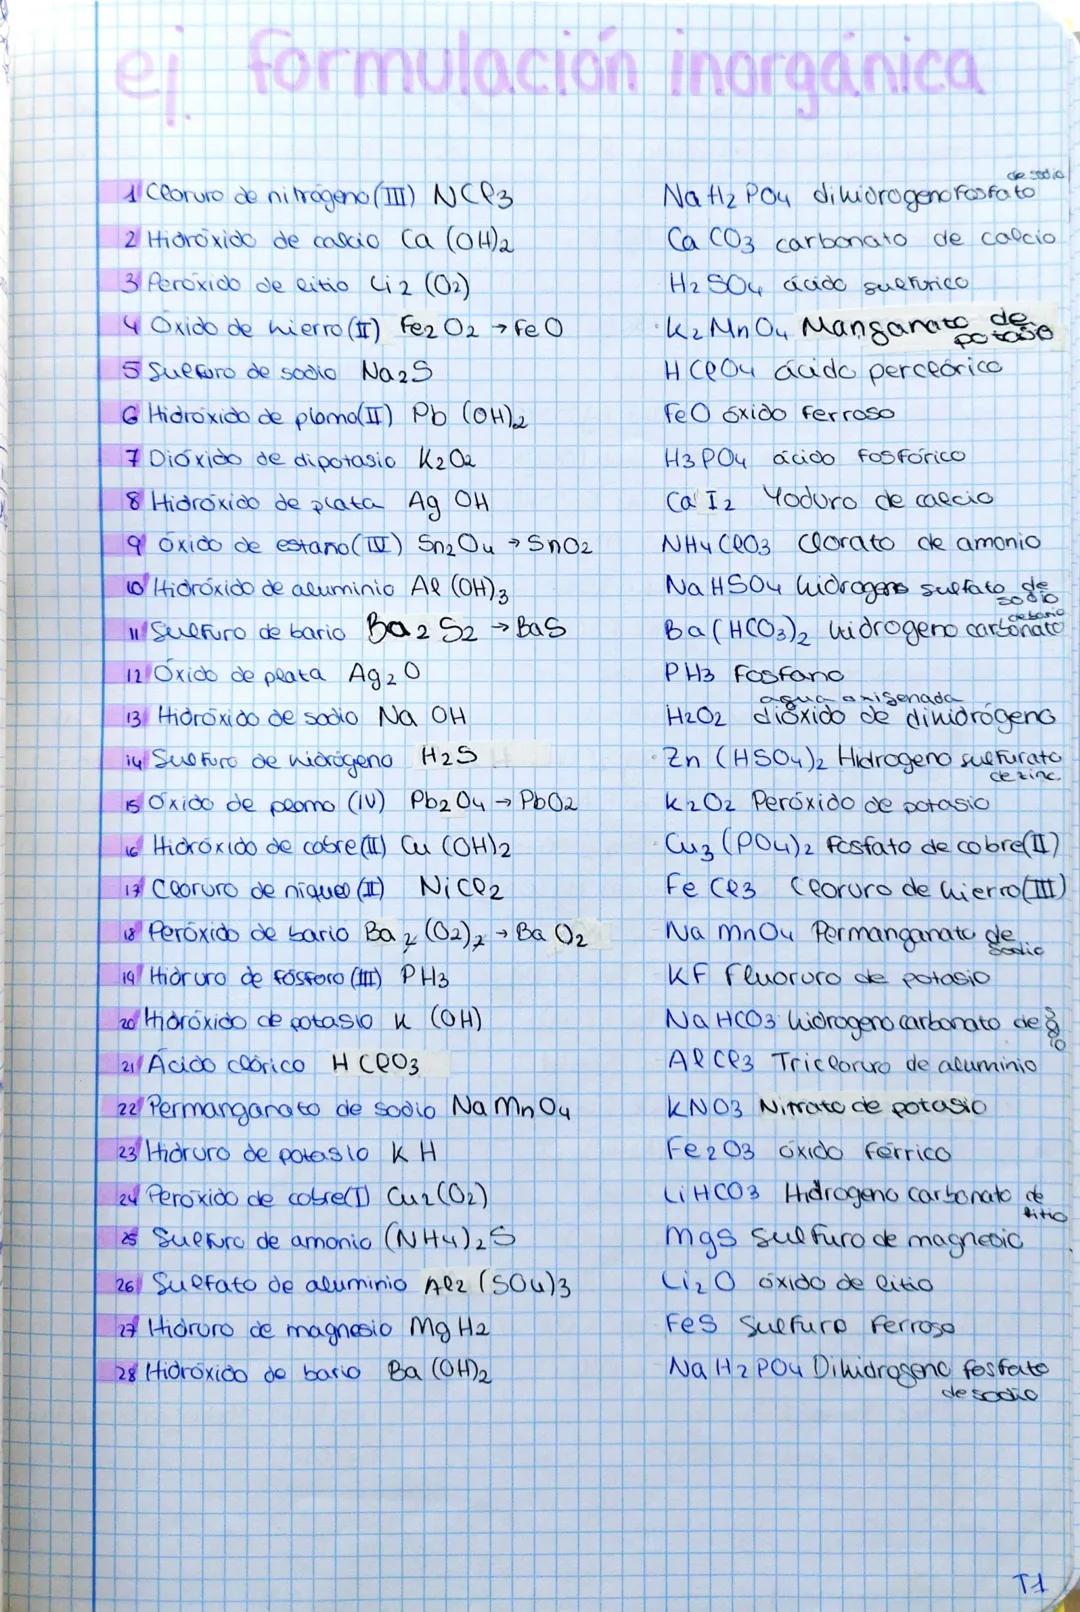 ej. formulación inorgánica
1 Cloruro de nitrógeno (III) NCl3
2 Hidróxido de calcio Ca (OH)2
3 Peróxido de litio Li2 (O2)
4 Óxido de hierro (II) Fe2O2 → FeO
5 Sulfuro de sodio Na2S
6 Hidróxido de plomo (II) Pb (OH)2
7 Dióxido de dipotasio K2O2
8 Hidróxido de plata Ag OH
9 óxido de estaño (IV) Sn2O4 → SnO2
10 Hidróxido de aluminio Al (OH)3
11 Sulfuro de bario Ba2S2 → BaS
12 Óxido de plata Ag2O
13 Hidróxido de sodio Na OH
14 Sulfuro de hidrógeno H2S
15 Óxido de plomo (IV) Pb2O4 → PbO2
16 Hidróxido de cobre (II) Cu (OH)2
17 Cloruro de níquel (II) NiCl2
18 Peróxido de bario Ba2 (O2)2 → Ba O2
19 Hidruro de fósforo (III) PH3
20 Hidróxido de potasio K (OH)
21 Ácido clórico H ClO3
22 Permanganato de sodio Na MnO4
23 Hidruro de potasio K H
24 Peróxido de cobre (I) Cu2 (O2)
25 Sulfuro de amonio (NH4)2S
26 Sulfato de aluminio Al2 (SO4)3
27 Hidruro de magnesio Mg H2
28 Hidróxido de bario Ba (OH)2
NaH2PO4 dihidrogenofosfato de sodio
Ca CO3 carbonato de calcio
H2SO4 ácido sulfúrico
K2MnO4 Manganato de potasio
HClO4 ácido perclórico
FeO óxido ferroso
H3PO4 ácido fosfórico
CaI2 Yoduro de calcio
NH4ClO3 Clorato de amonio
NaHSO4 hidrogeno sulfato de sodio
Ba(HCO3)2 hidrogeno carbonato de bario
PH3 Fosfano
agua oxigenada
H2O2 dióxido de dihidrógeno
Zn (HSO4)2 Hidrogeno sulfurato de zinc
K2O2 Peróxido de potasio
Cu3 (PO4)2 Fosfato de cobre (II)
Fe Cl3 Cloruro de hierro (III)
Na MnO4 Permanganato de sodio
KF Fluoruro de potasio
NaHCO3 hidrogeno carbonato de sodio
AlCl3 Tricloruro de aluminio
KNO3 Nitrato de potasio
Fe2O3 óxido férrico
LiHCO3 Hidrogeno carbonato de litio
MgS Sulfuro de magnesio
Li2O óxido de litio
FeS Sulfuro ferroso
NaH2PO4 Dihidrogeno fosfato de sodio
T1